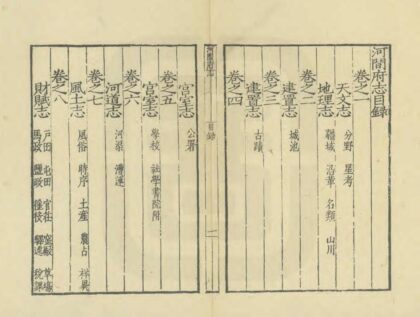 河間府志目錄
卷之一
天文志 分野 星考
地理志 疆域 沿革 名類 山川
卷之二
建置志 城池
卷之三
建置志 古蹟
卷之四
河間府志 目錄 一
宮室志 公署
卷之五
宮室志 學校 社學書院附
卷之六
河道志 河渠 漕運
卷之七
風土志 風俗 時序 土產 農占 祥異
卷之八
財賦志 戶田 屯田 官莊 草場
馬政 鹽政 種牧 驛遞 稅課